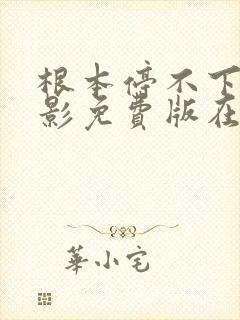 根本停不下
影免费版在
華小宅